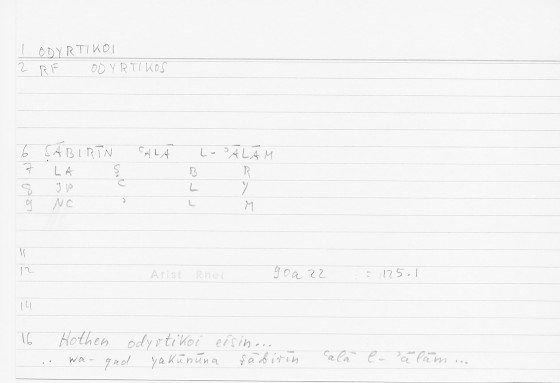 1 ODYRTIKOI
2 RF ODYRTIKOS
6 ṢĀBIRĪN ʿALĀ L-ʾĀLĀM
7 LA Ṣ B R
8 JP ʿ L Y
9 NC ʾ L M
11
12 Arist Rhet 90a22 = 125.1
14
16 Hothen odyrtikoi eisin...
.. wa-qad yakūnūna ṣābirīn ʿalā l-ʾālām ...